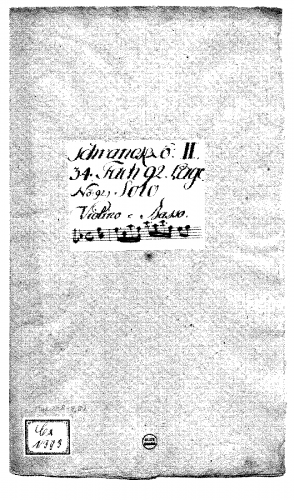 Schranck No: II.
34. Fach 92. Lage.
No: 9.) Solo
Violino e Basso.
Cx
1393